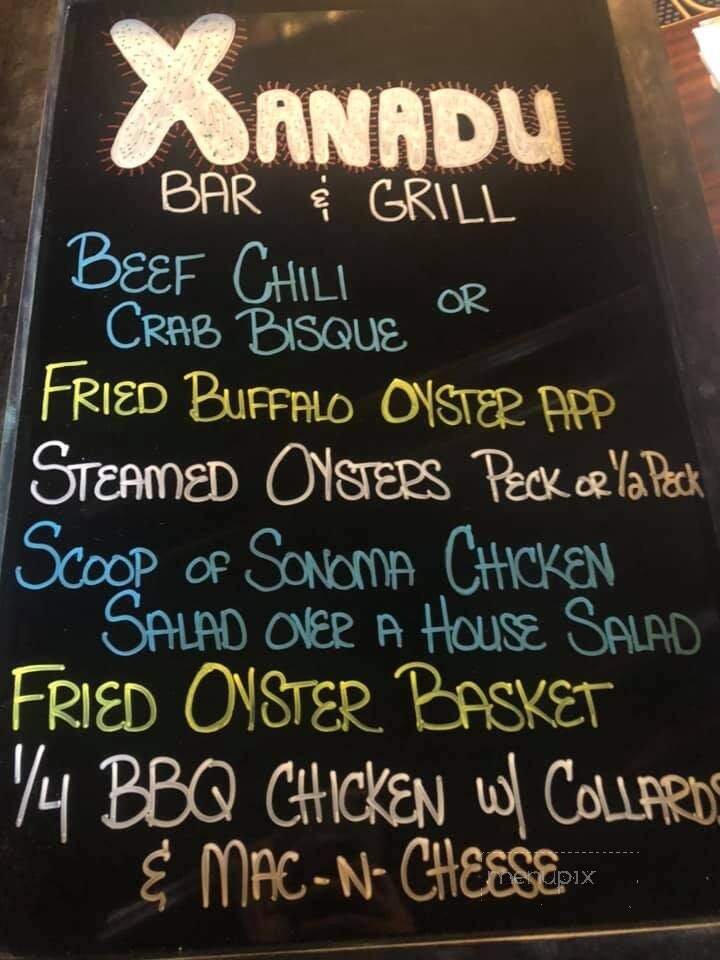 XANADU
BAR & GRILL
BEEF CHILI OR
CRAB BISQUE
FRIED BUFFALO OYSTER APP
STEAMED OYSTERS PECK OR 1/2 PECK
SCOOP OF SONOMA CHICKEN
SALAD OVER A HOUSE SALAD
FRIED OYSTER BASKET
1/4 BBQ CHICKEN W/ COLLARDS
& MAC-N-CHEESE
menupix